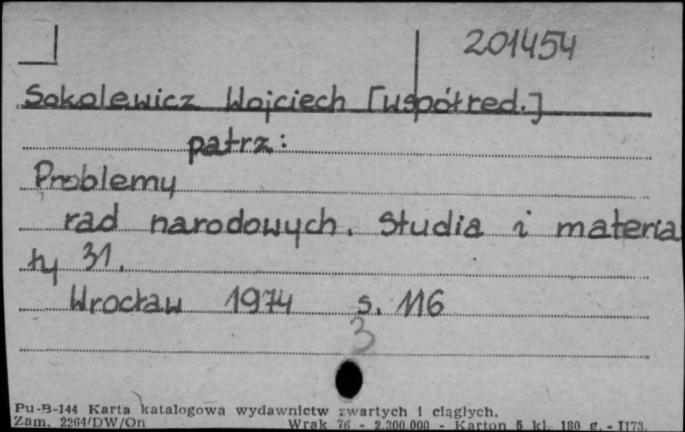 201454
Sokolewicz Wojciech [współred.]
patrz:
Problemy
rad narodowych. Studia i materia
ły 31.
Wrocław 1974 s. 116
3
Pu-B-144 Karta katalogowa wydawnictw zwartych i ciągłych.
Zam. 2264/DW/On Wrak 76 - 2.300.000 - Karton 5 kl. 180 g. - II73.